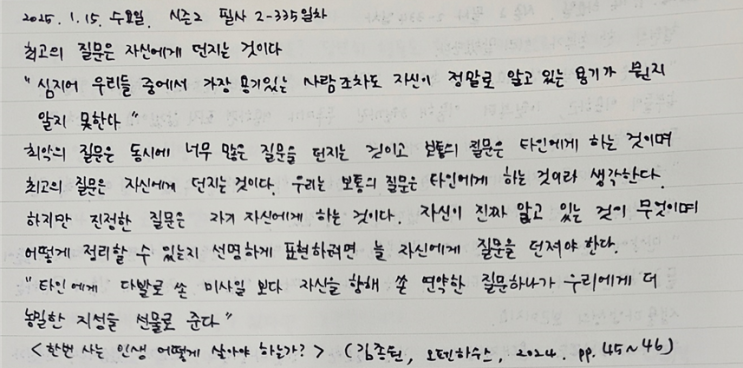 2025. 1. 15. 수요일. 시즌2 필사 2-335일차
최고의 질문은 자신에게 던지는 것이다
" 심지어 우리들 중에서 가장 용기있는 사람조차도 자신이 정말로 알고 있는 용기가 뭔지
알지 못한다 "
최악의 질문은 동시에 너무 많은 질문을 던지는 것이고 보통의 질문은 타인에게 하는 것이며
최고의 질문은 자신에게 던지는 것이다. 우리는 보통의 질문은 타인에게 하는 것이라 생각한다.
하지만 진정한 질문은 자기 자신에게 하는 것이다. 자신이 진짜 알고 있는 것이 무엇이며
어떻게 정리할 수 있는지 선명하게 표현하려면 늘 자신에게 질문을 던져야 한다.
" 타인에게 다발로 쏜 미사일 보다 자신을 향해 쏜 연약한 질문하나가 우리에게 더
농밀한 지성을 선물로 준다 "
< 한번 사는 인생 어떻게 살아야 하는가? > ( 김종원, 오텐하우스, 2024. pp. 45~46)